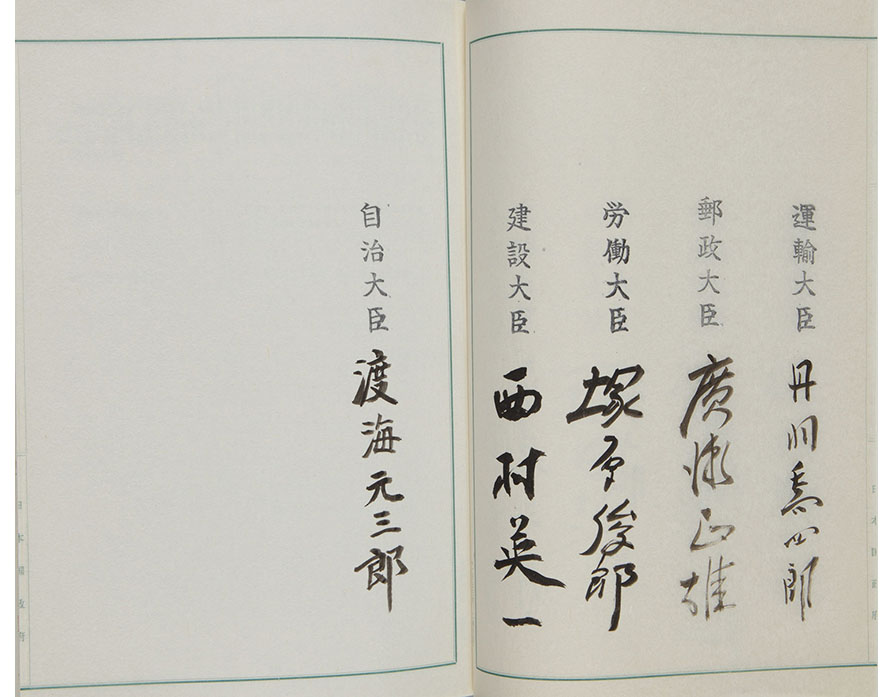 運輸大臣 丹羽喬四郎
郵政大臣 廣瀬正雄
労働大臣 塚原俊郎
建設大臣 西村英一
自治大臣 渡海元三郎